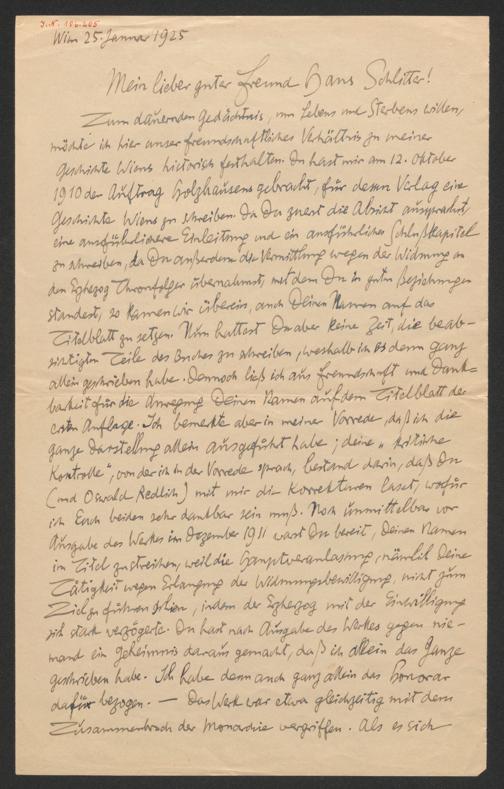 J.N. 186.205
Wien 25. Januar 1925
Mein lieber guter Freund Hans Schlitter!
Zum dauernden Gedächtnis, um Lebens und Sterbens willen,
möchte ich hier unser freundschaftliches Verhältnis zu meiner
Geschichte Wiens historisch festhalten. Du hast mir am 12. Oktober
1910 den Auftrag Holzhausens gebracht, für dessen Verlag eine
Geschichte Wiens zu schreiben. Da Du zuerst die Absicht aussprachst,
eine ausführlichere Einleitung und ein ausführliches Schlußkapitel
zu schreiben, da Du außerdem die Vermittlung wegen der Widmung an
den Erzherzog Thronfolger übernahmst, mit dem Du in guten Beziehungen
standest, so kamen wir überein, auch Deinen Namen auf das
Titelblatt zu setzen. Nun hattest Du aber keine Zeit, die beab-
sichtigten Teile des Buches zu schreiben, weshalb ich es denn ganz
allein geschrieben habe. Dennoch ließ ich aus Freundschaft und Dank-
barkeit für die Anregung Deinen Namen auf dem Titelblatt der
ersten Auflage. Ich bemerkte aber in meiner Vorrede, daß ich die
ganze Darstellung allein ausgeführt habe; deine „kritische
Kontrolle", von der ich in der Vorrede sprach, bestand darin, daß Du
(und Oswald Redlich) mit mir die Korrekturen laset, wofür
ich Euch beiden sehr dankbar sein muß. Noch unmittelbar vor
Ausgabe des Werkes im Dezember 1911 warst Du bereit, Deinen Namen
im Titel zu streichen, weil die Hauptveranlassung, nämlich Deine
Tätigkeit wegen Erlangung der Widmungsbewilligung, nicht zum
Ziel zu führen schien, indem der Erzherzog mit der Einwilligung
sich stark verzögerte. Du hast nach Ausgabe des Werkes gegen nie-
mand ein Geheimnis daraus gemacht, daß ich allein das Ganze
geschrieben habe. Ich habe denn auch ganz allein das Honorar
dafür bezogen. — Das Werk war etwa gleichzeitig mit dem
Zusammenbruch der Monarchie vergriffen. Als es sich